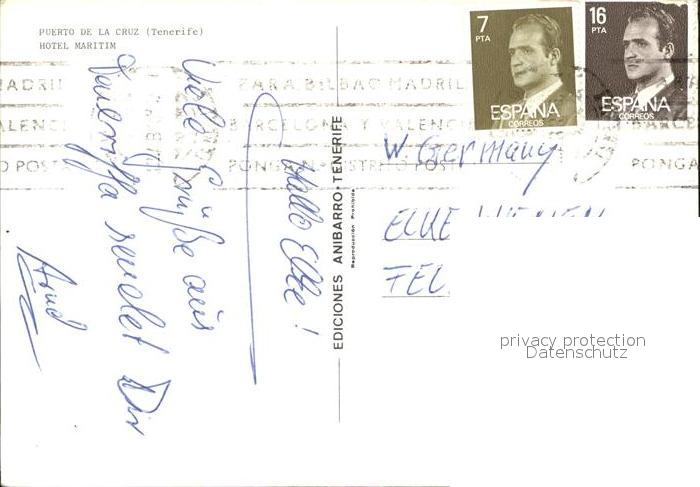 PUERTO DE LA CRUZ (Tenerife)
HOTEL MARITIM
7
PTA
ESPAÑA
CORREOS
16
PTA
ESPAÑA
CORREOS
BILBAO MADRIL
BARCELONA Y VALENCI
PONGAN DISTRITO POST
PONGA
EDICIONES ANIBARRO-TENERIFE
Reproducción Prohibida
Hallo Elke!
Viele Grüße aus
Teneriffa sendet Dir
W. Germany
ELKE
privacy protection
Datenschutz